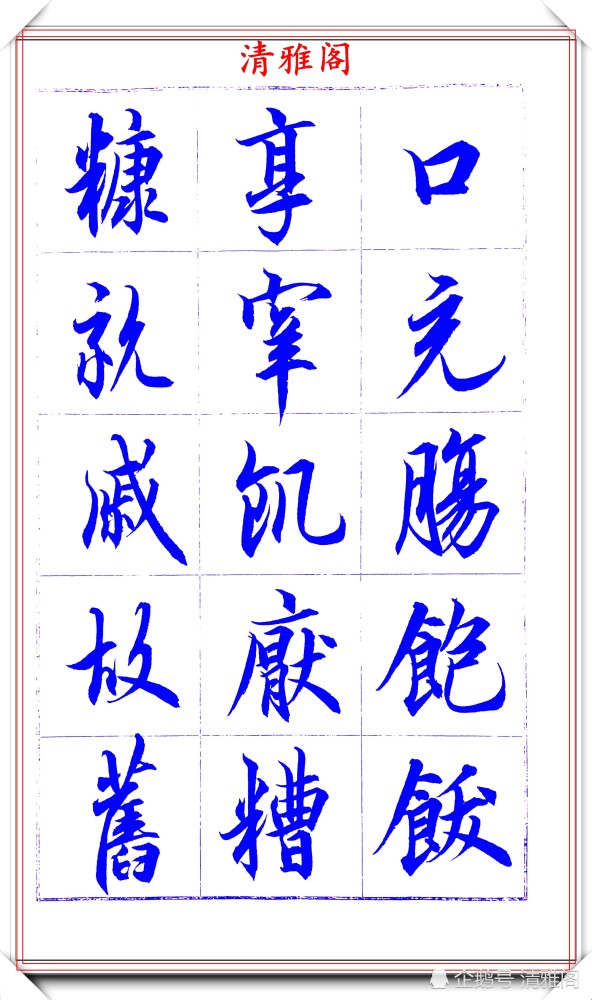 清雅阁
口充腸飽飫
享宰飢厭糟
糠親戚故舊
企鹅号 清雅阁